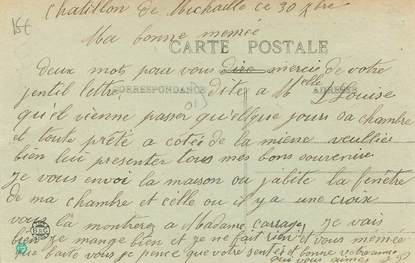 15€
Chatillon de Michaille ce 30 Xbre
Ma bonne mémée
CARTE POSTALE
Deux mots pour vous dire merci de votre
jentil lettre, dite a Melle Louise
CORRESPONDANCE ADRESSE
qu'el vienne passer quelque jours sa chambre
et toute prêtè a cotès de la miene veulliès
bien lui presenter tous mes bons souvenirs
Je vous envoi la maison ou j'abite la fenêtre
de ma chambre et celle ou il y a une croix
vous la montrerez a Madame Carrage, Je vais
bien je mange bien et je ne fait rien et vous mémée
que faite vous je pence que votre sentè et bonne votre
qui vous aimes